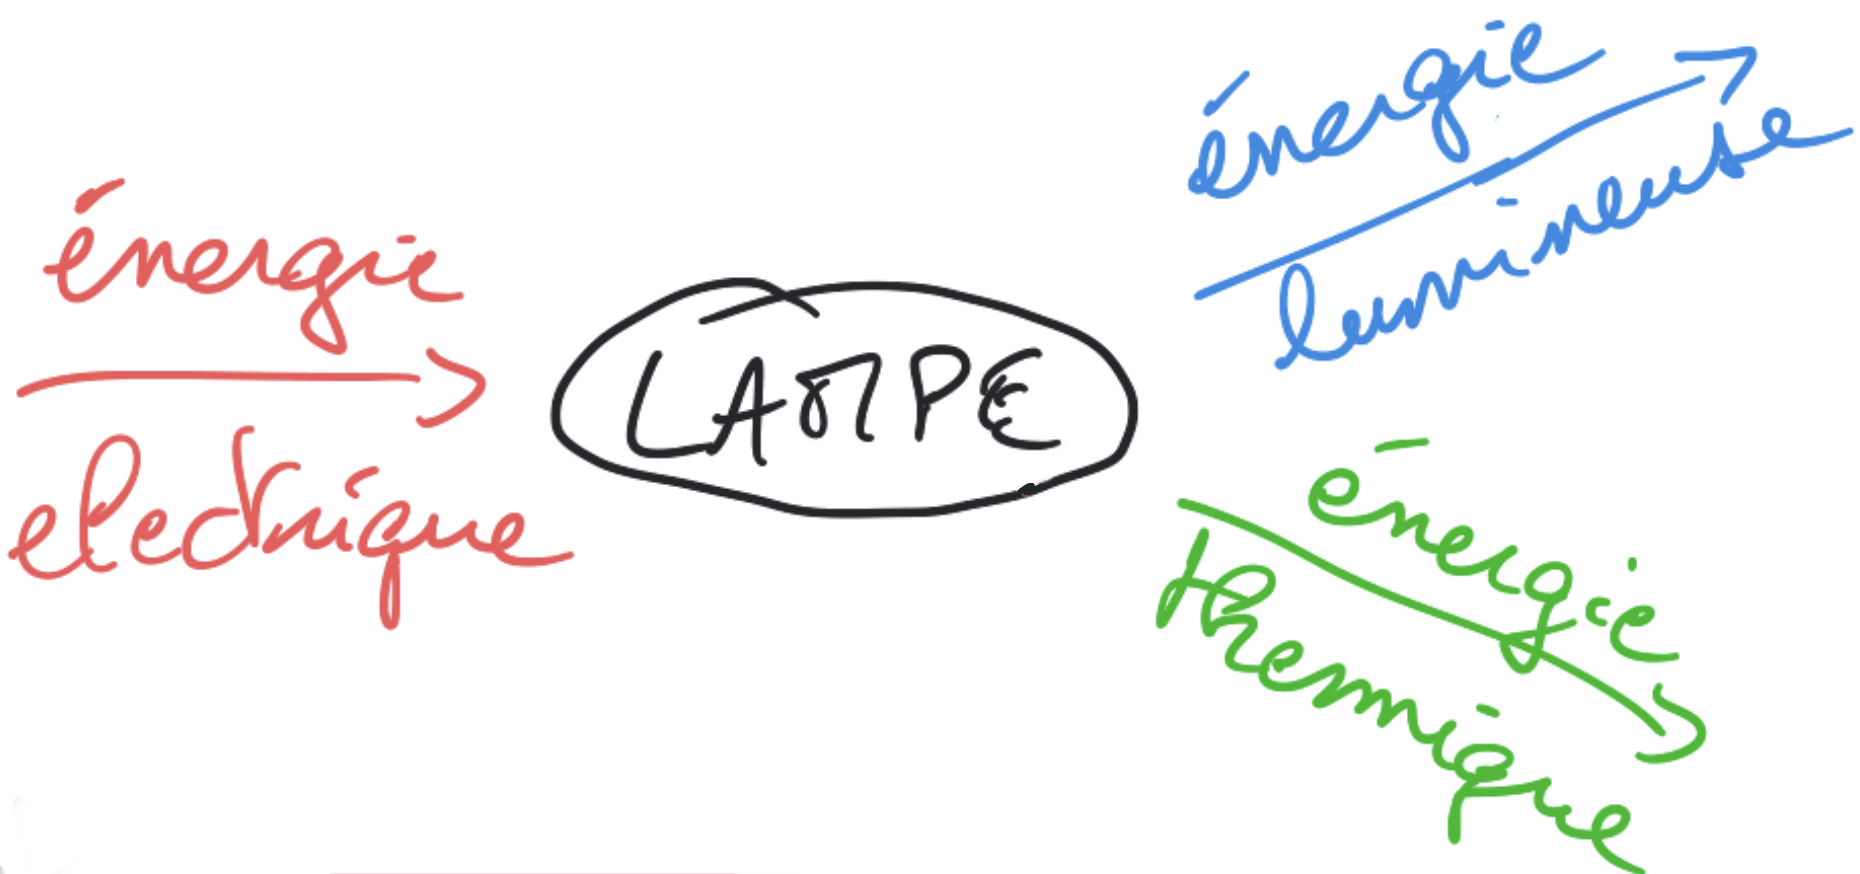 énergie
electrique
LAMPE
énergie
lumineuse
énergie
thermique